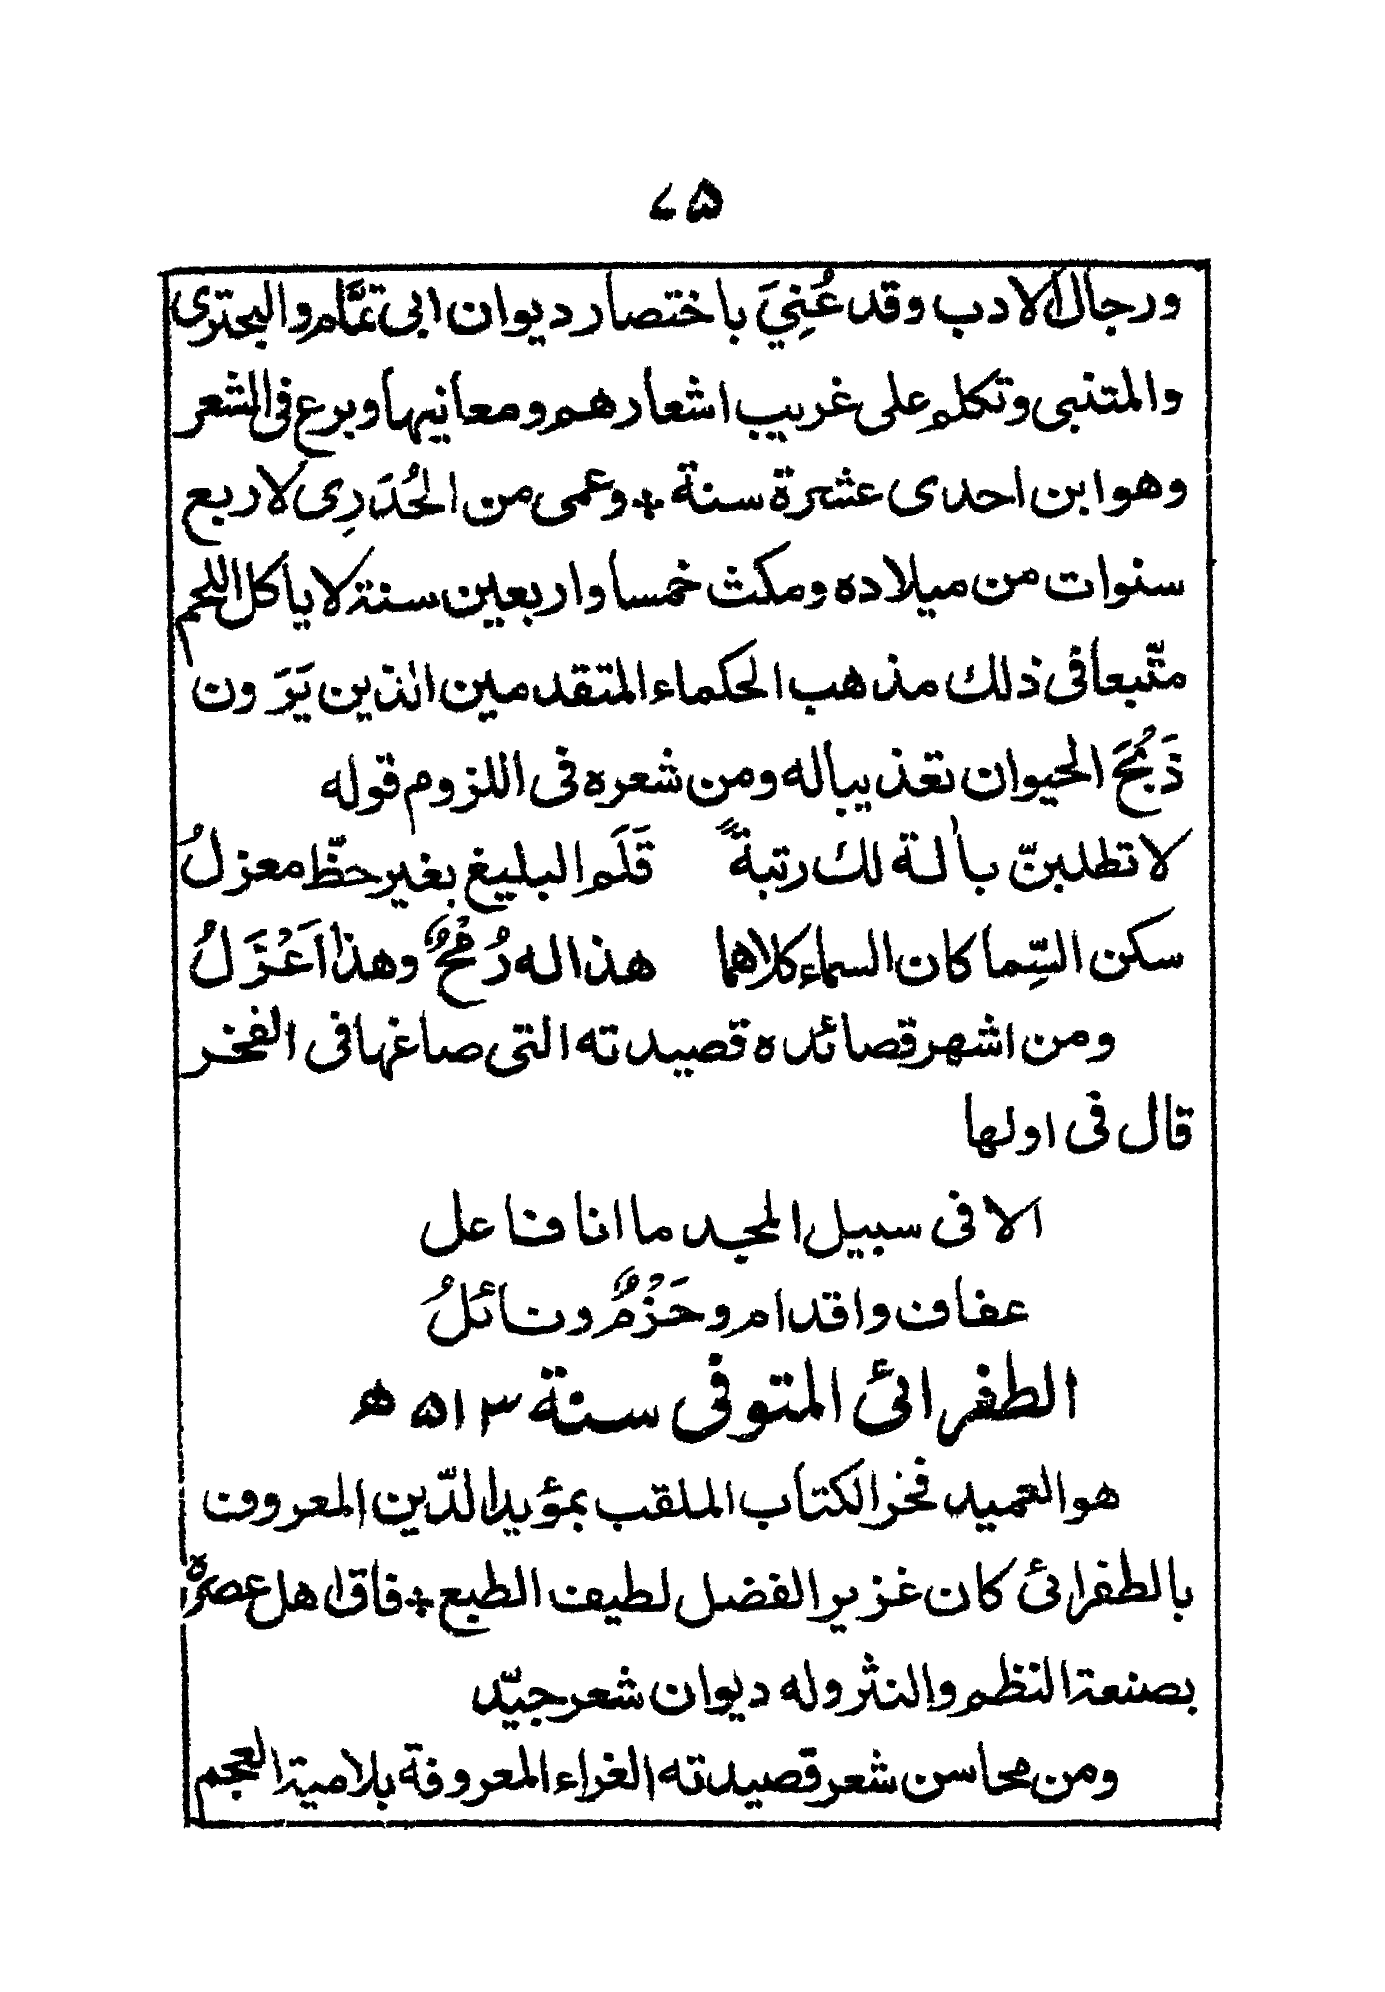 ۷۵
ورجال الادب وقد عُنِيَ باختصار ديوان ابى تمّام والبحترى
والمتنبى وتكلم على غريب اشعارهم ومعانيها وبرع فى الشعر
وهو ابن احدى عشرة سنة * وعمى من الجُدَرِى لاربع
سنوات من ميلاده ومكث خمسا واربعين سنة لا يأكل اللحم
متّبعا فى ذلك مذهب الحكماء المتقدمين الذين يَرَون
ذَبُحَ الحيوان تعذيباله ومن شعره فى اللزوم قوله
لا تطلبنّ بألة لك رتبةً قَلَم البليغ بغير حظّ معزلُ
سكن السِّما كان السماء كلاهما هذا له رُمْحٌ وهذا اَعْزَلُ
ومن اشهر قصائده قصيدته التى صاغها فى الفخر
قال فى اولها
الا فى سبيل المجد ما انا فاعل
عفاف واقدام وحَزْمٌ ونائلُ
الطفرائ المتوفى سنة ۵۱۳ ھ
هو العميد فخر الكتاب الملقب بمؤيد الدّين المعروف
بالطفرائ كان غزير الفضل لطيف الطبع * فاق اهل عصرہ
بصنعة النظم والنثر وله ديوان شعر جيّد
ومن محاسن شعر قصيدته الغراء المعروفة بلامية العجم